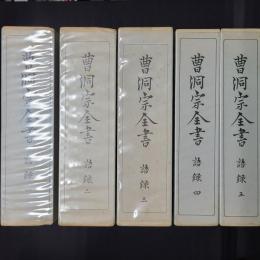 曹洞宗全書 語録一
曹洞宗全書 語録二
曹洞宗全書 語録三
曹洞宗全書 語録四
曹洞宗全書 語録五